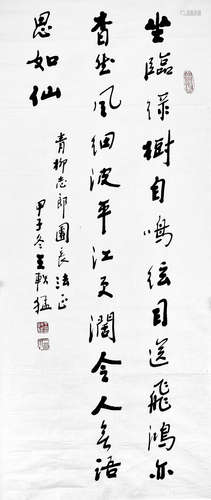 坐臨綠樹自鳴弦目送飛鴻亦
杳然風細波平江更闊令人無語
思如仙
青柳志郎團長法正
甲子冬王軼猛